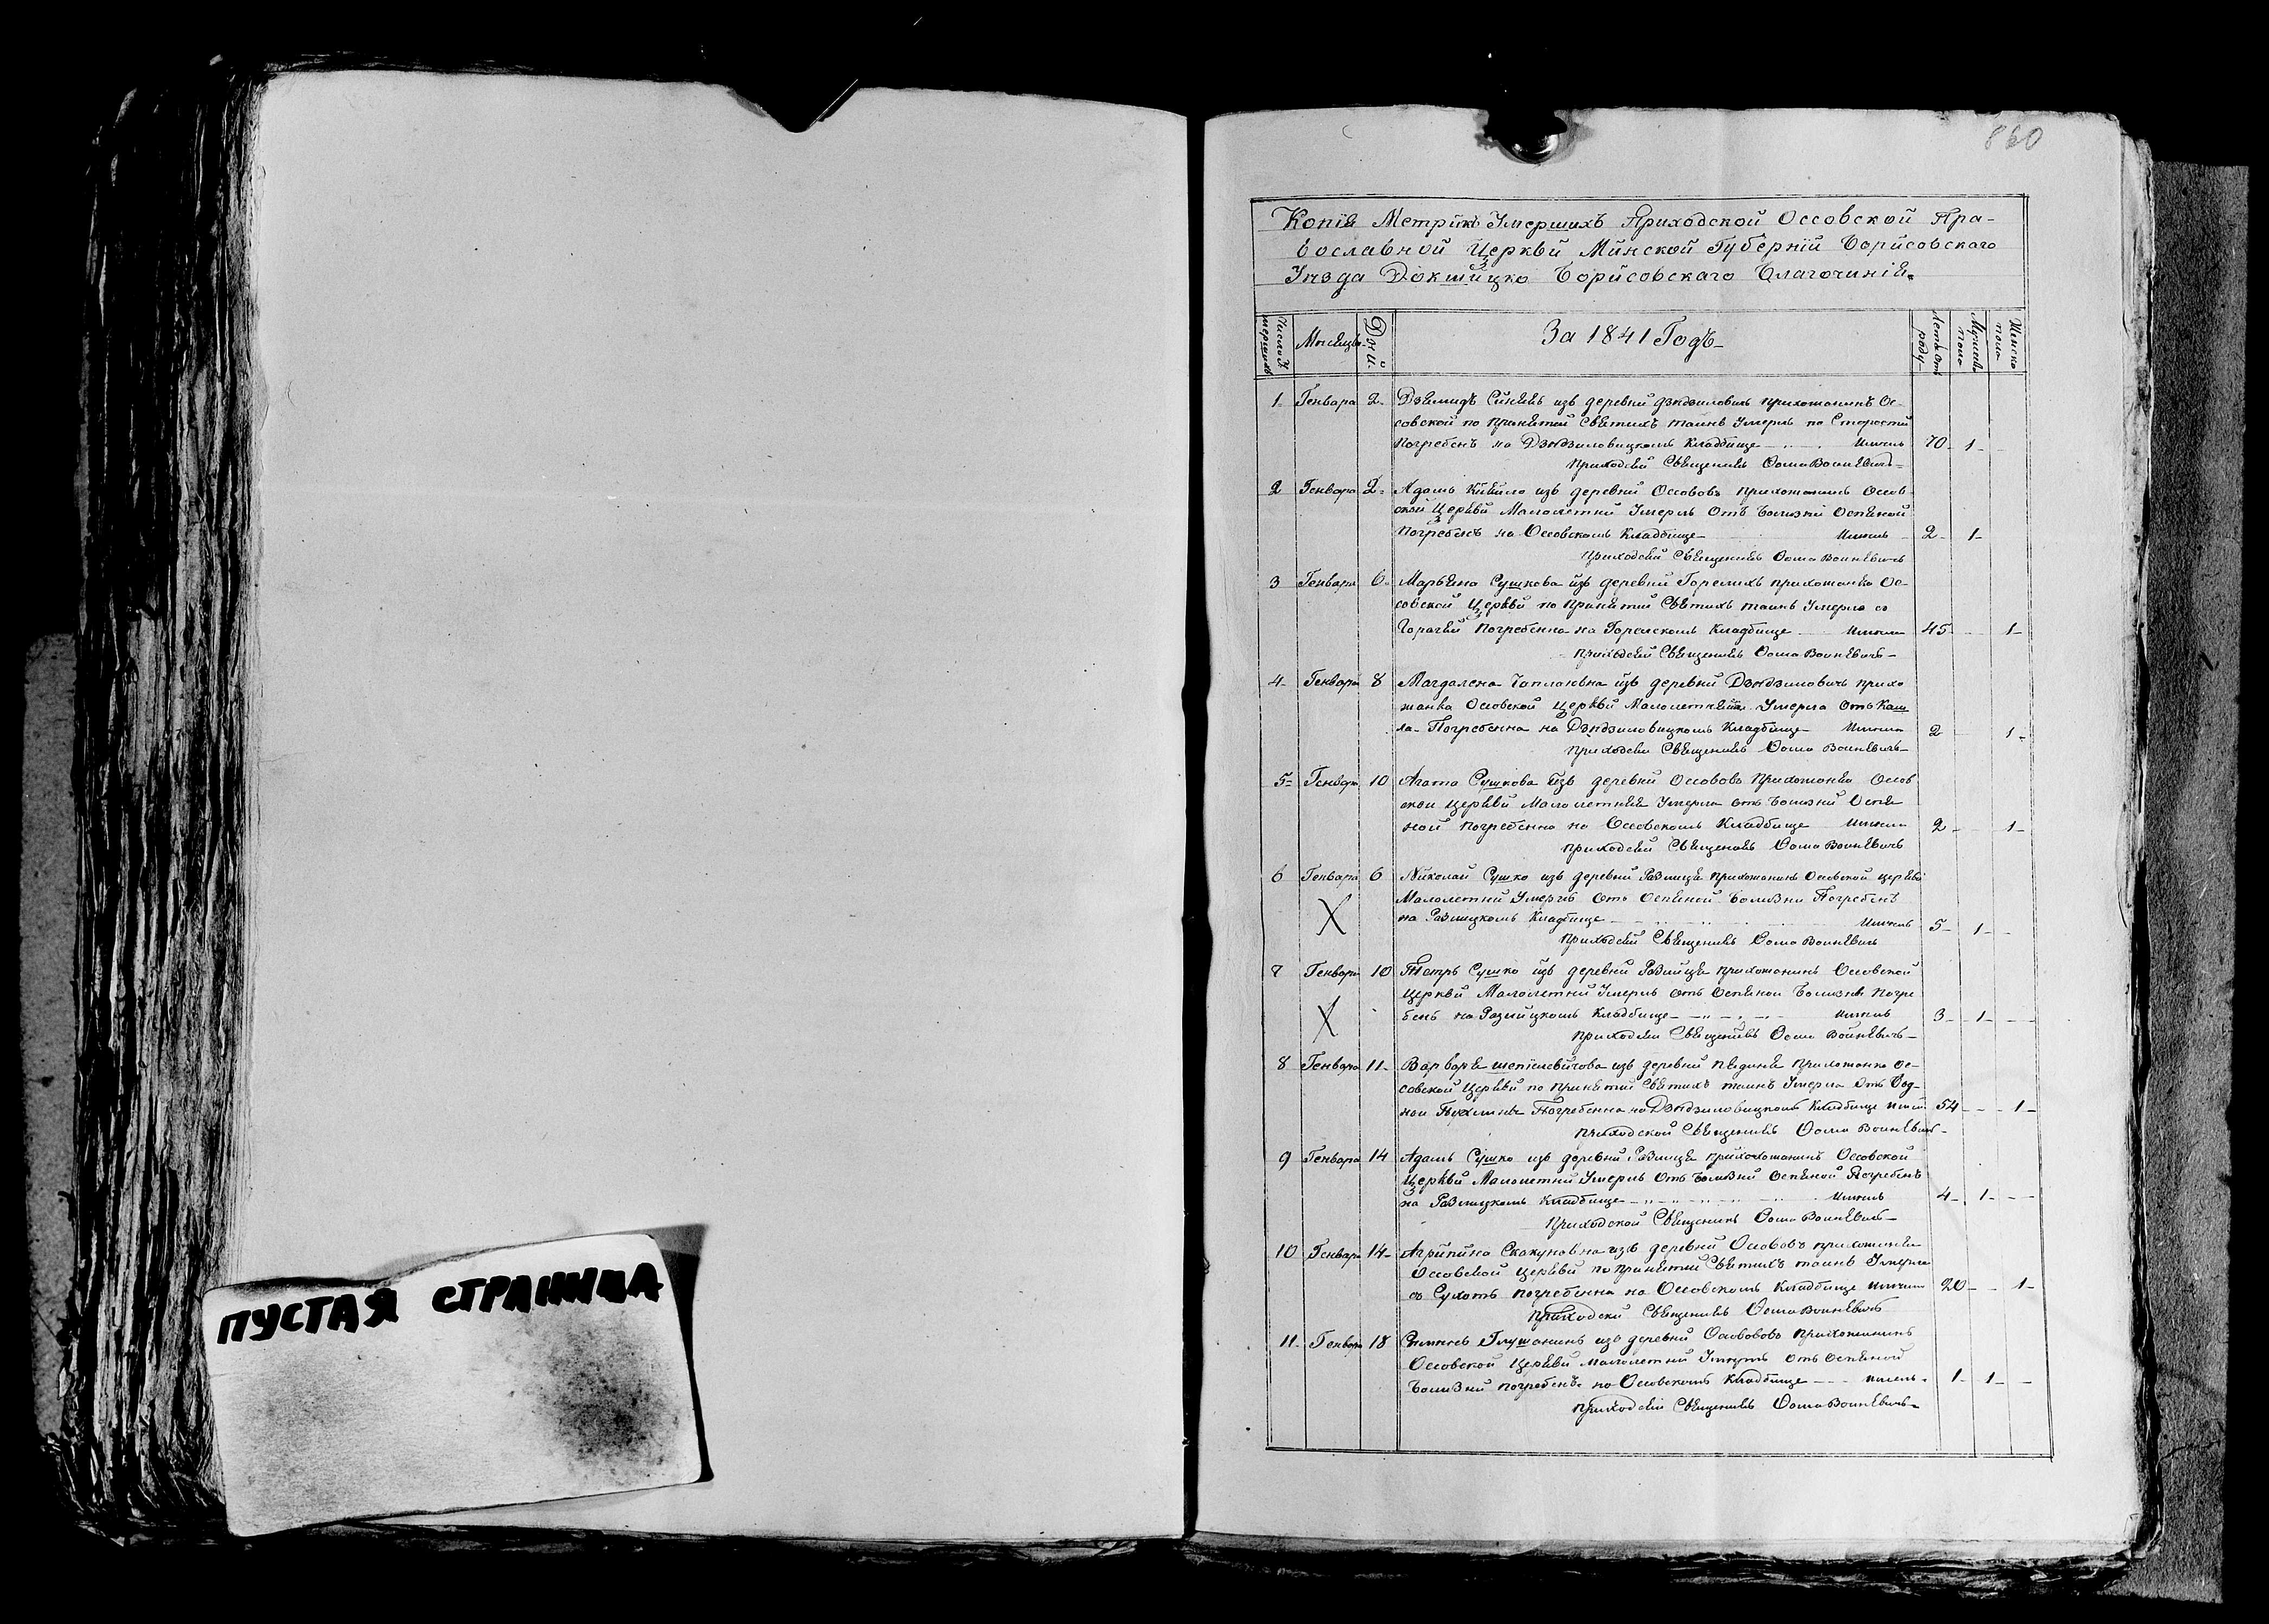 ПУСТАЯ СТРАНИЦА
860
Копія Метрикъ Умершихъ Приходской Оссовской Пра-
вославной Церкви Минской Губерніи Борисовскаго
Уѣзда Докшицко Борисовскаго Благочинія
Число У мершихъ Мѣсяцы Дни За 1841 Годъ Лета отъ роду Мужеска пола Женска пола
1 Генваря 2 изъ деревни Дзѣдзиловичъ прихожанинъ Ос-
совской по принятіи Святихъ таинъ Умерлъ по Старости
погребенъ на Дзѣдзиловицкомъ Кладбище Имѣлъ 70 1
приходскій Священникъ Фома Войневичъ
2 Генваря 2 Адамъ из деревни Оссововъ прихожанинъ Оссов
ской Церкви Малолетній Умерлъ отъ Болизни Оспяной
погребенъ на Оссовскомъ Кладбище Имѣлъ 2 1
приходскій Священникъ Фома Войневичъ
3 Генваря 6 Марьяна Сушкова изъ деревни прихожанка Ос-
совской Церкви по принятіи Святихъ таинъ Умерла с
Горачки погребенна на Кладбище Имѣла 45 1
приходскій Священникъ Фома Войневичъ
4 Генваря 8 Магдалена изъ деревни Дзѣдзиловичъ прихо
жанка Оссовской Церкви Малолетняя Умерла отъ Каш
ля Погребенна на Дзѣдзиловицкомъ Кладбище Имѣла 2 1
приходскій Священникъ Фома Войневичъ
5 Генваря 10 Агата Сушкова изъ деревни Оссововъ прихожанка Оссов
ской церкви Малолетняя Умерла отъ Болизни Оспя
ной погребенна на Оссовскомъ Кладбище Имѣла 2 1
приходскій Священникъ Фома Войневичъ
6 Генваря 6 Николай Сушко изъ деревни прихожанинъ Оссовской церкви
Малолетній Умерлъ отъ Оспяной Болизни Погребенъ
на Кладбище Имѣлъ 5 1
X
приходскій Священникъ Фома Войневичъ
7 Генваря 10 Петръ Сушко изъ деревни прихожанинъ Оссовской
Церкви Малолетній Умерлъ отъ Оспяной Болизни Погре
бенъ на Кладбище Имѣлъ 3 1
X
приходскій Священникъ Фома Войневичъ
8 Генваря 11 Варвара изъ деревни прихожанка Ос-
совской Церкви по принятіи Святихъ таинъ Умерла отъ Вод-
ной Погребенна на Дзѣдзиловицкомъ Кладбище 54 1
приходской Священникъ Фома Войневичъ
9 Генваря 14 Адамъ Сушко изъ деревни прихожанинъ Оссовской
Церкви Малолетній Умерлъ отъ Болизни Оспяной Погребенъ
на Кладбище Имѣлъ 4 1
приходской Священникъ Фома Войневичъ
10 Генваря 14 Агрипина Скакуновна изъ деревни Оссововъ прихожанка
Оссовской Церкви по принятіи Святихъ таинъ Умерла
съ Сухотъ погребенна на Оссовскомъ Кладбище Имѣла 20 1
приходскій Священникъ Фома Войневичъ
11 Генваря 18 изъ деревни Оссововъ прихожанинъ
Оссовской Церкви Малолетній отъ Оспяной
Болизни погребенъ на Оссовскомъ Кладбище Имѣлъ 1 1
приходскій Священникъ Фома Войневичъ